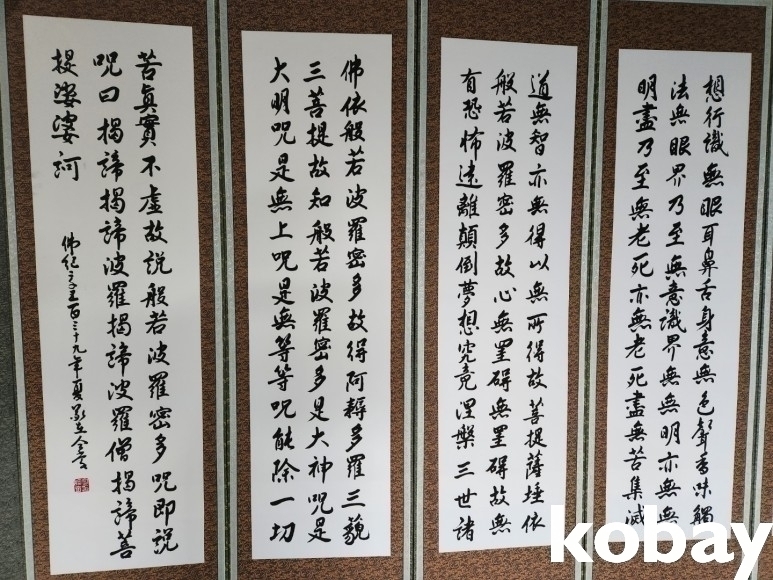 想行識無眼耳鼻舌身意無色聲香味觸
法無眼界乃至無意識界無無明亦無無
明盡乃至無老死亦無老死盡無苦集滅
道無智亦無得以無所得故菩提薩埵依
般若波羅密多故心無罣碍無罣碍故無
有恐怖遠離顛倒夢想究竟涅槃三世諸
佛依般若波羅密多故得阿耨多羅三藐
三菩提故知般若波羅密多是大神咒是
大明咒是無上咒是無等等咒能除一切
苦眞實不虛故說般若波羅密多咒即說
咒曰揭諦揭諦波羅揭諦波羅僧揭諦菩
提娑婆訶
佛紀二五百三十九年夏
kobay